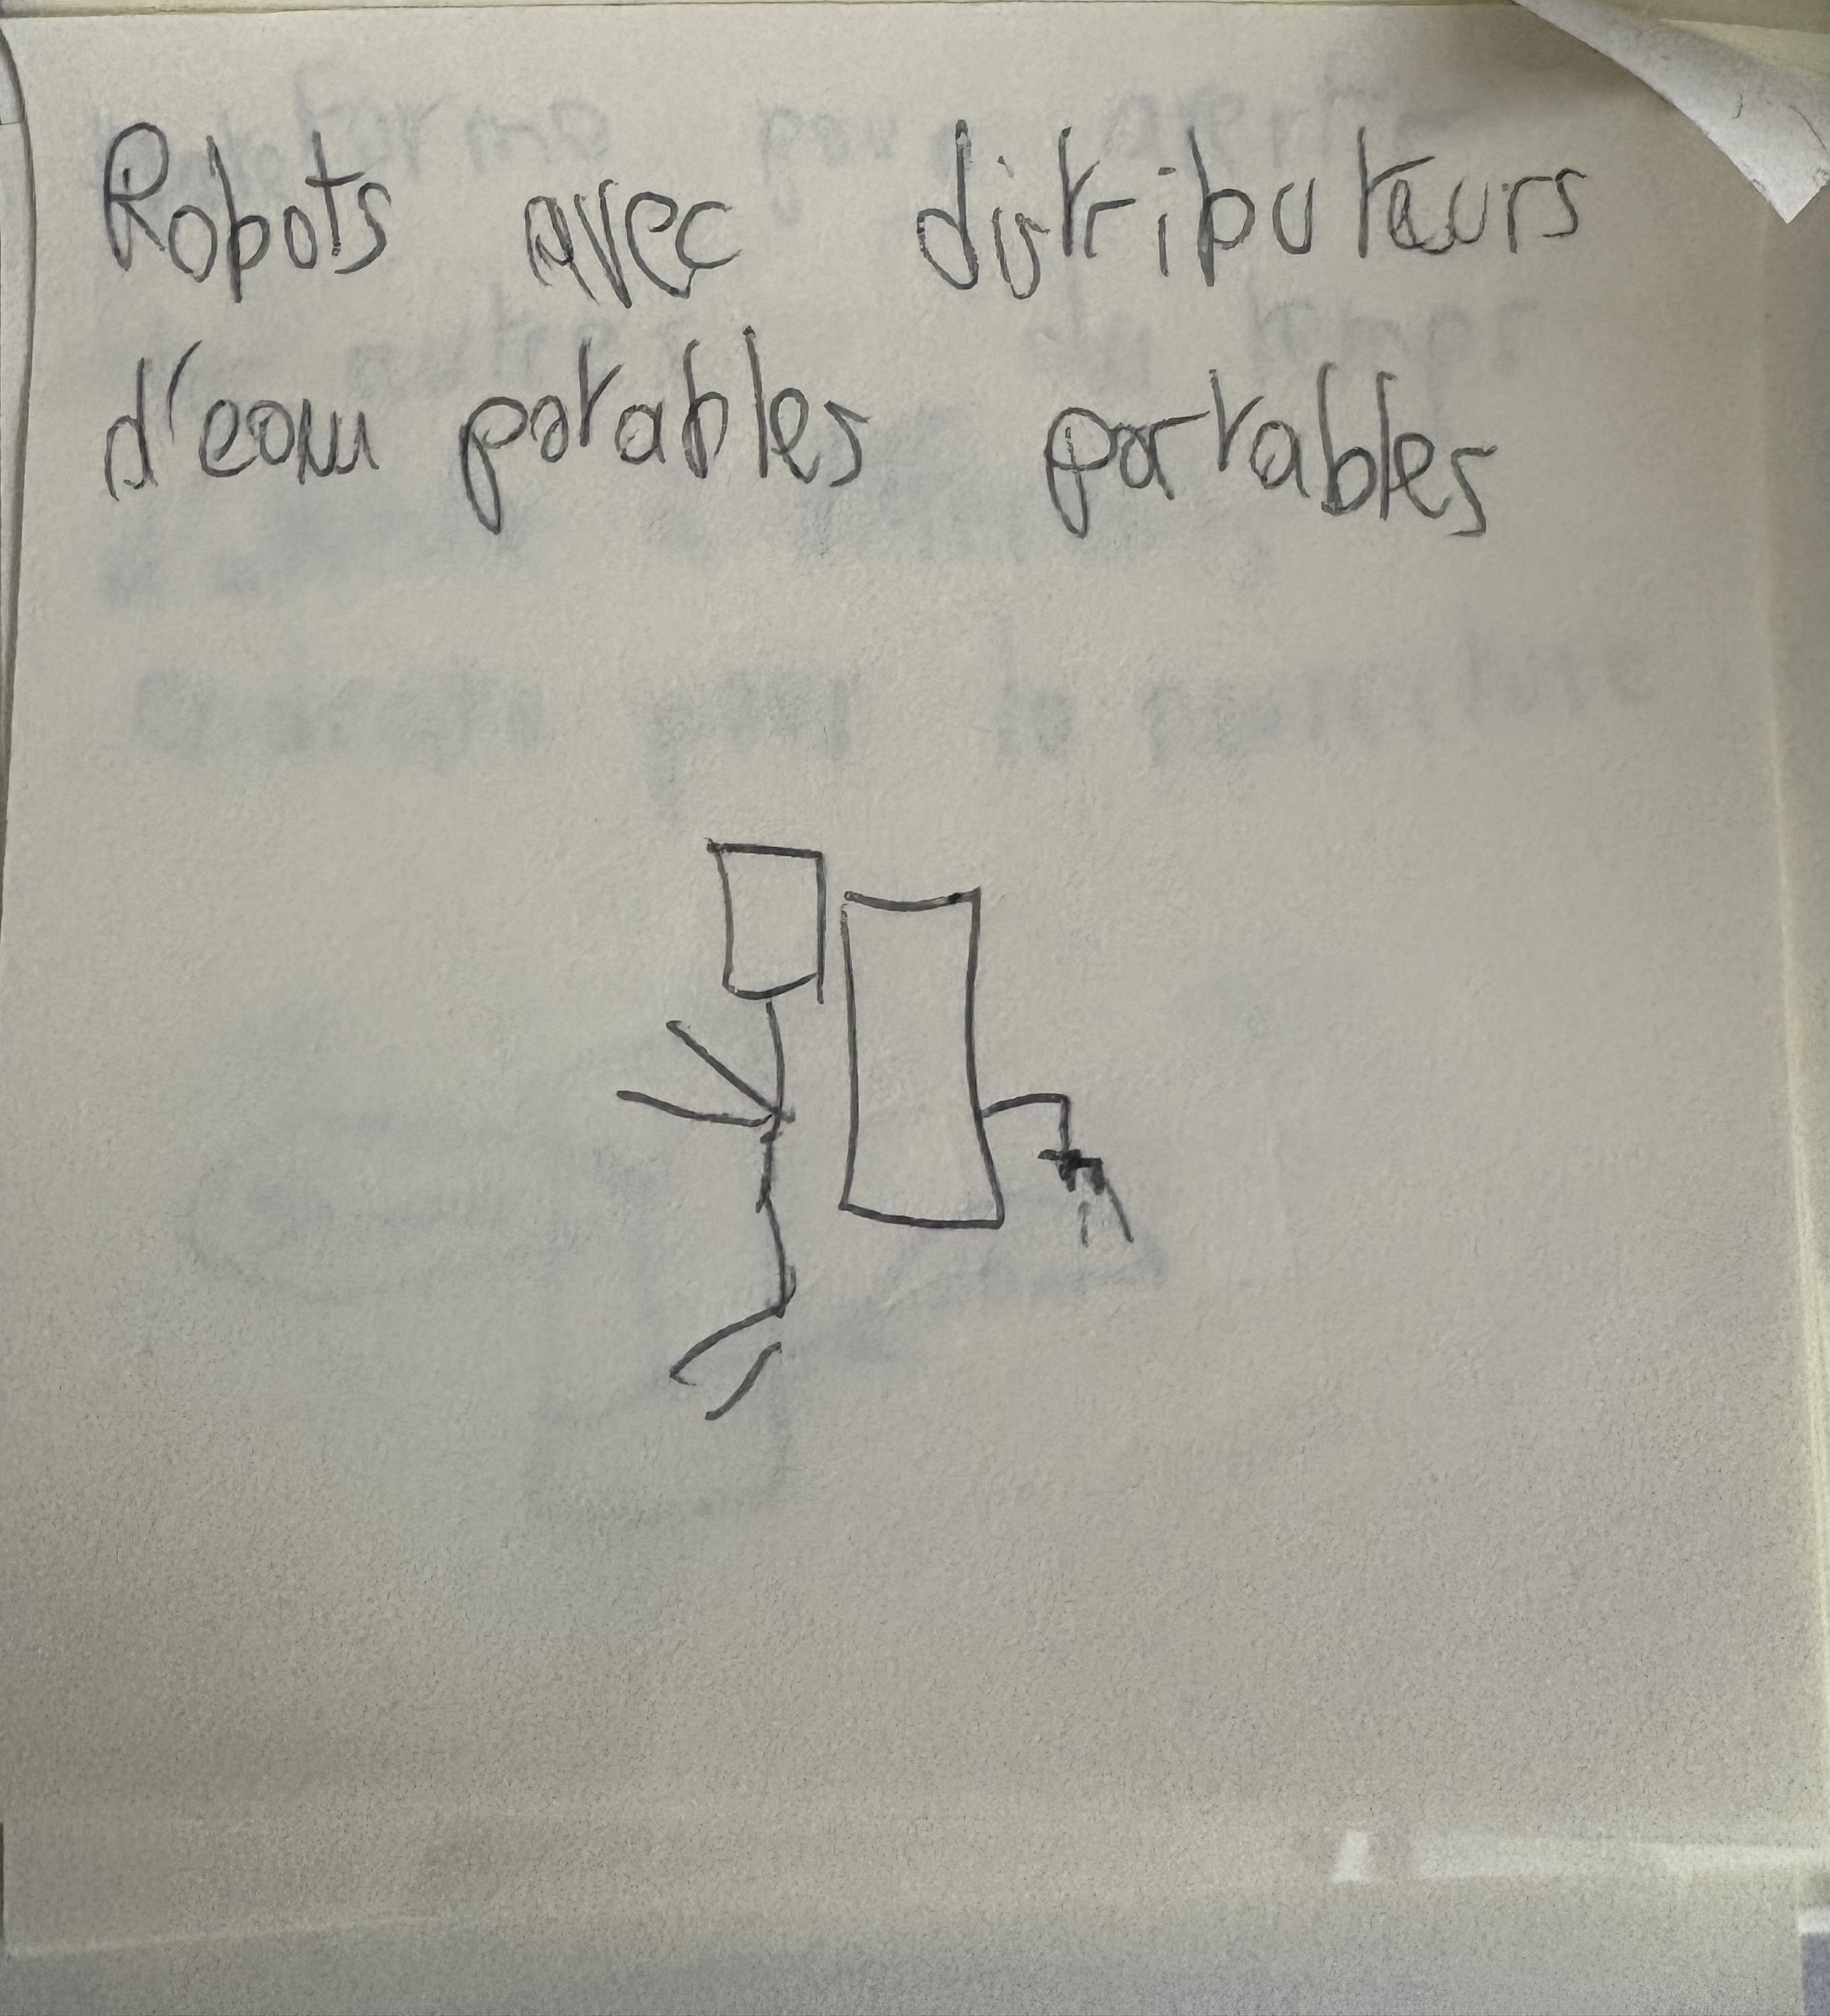 Robots avec distributeurs
d'eau potables portables